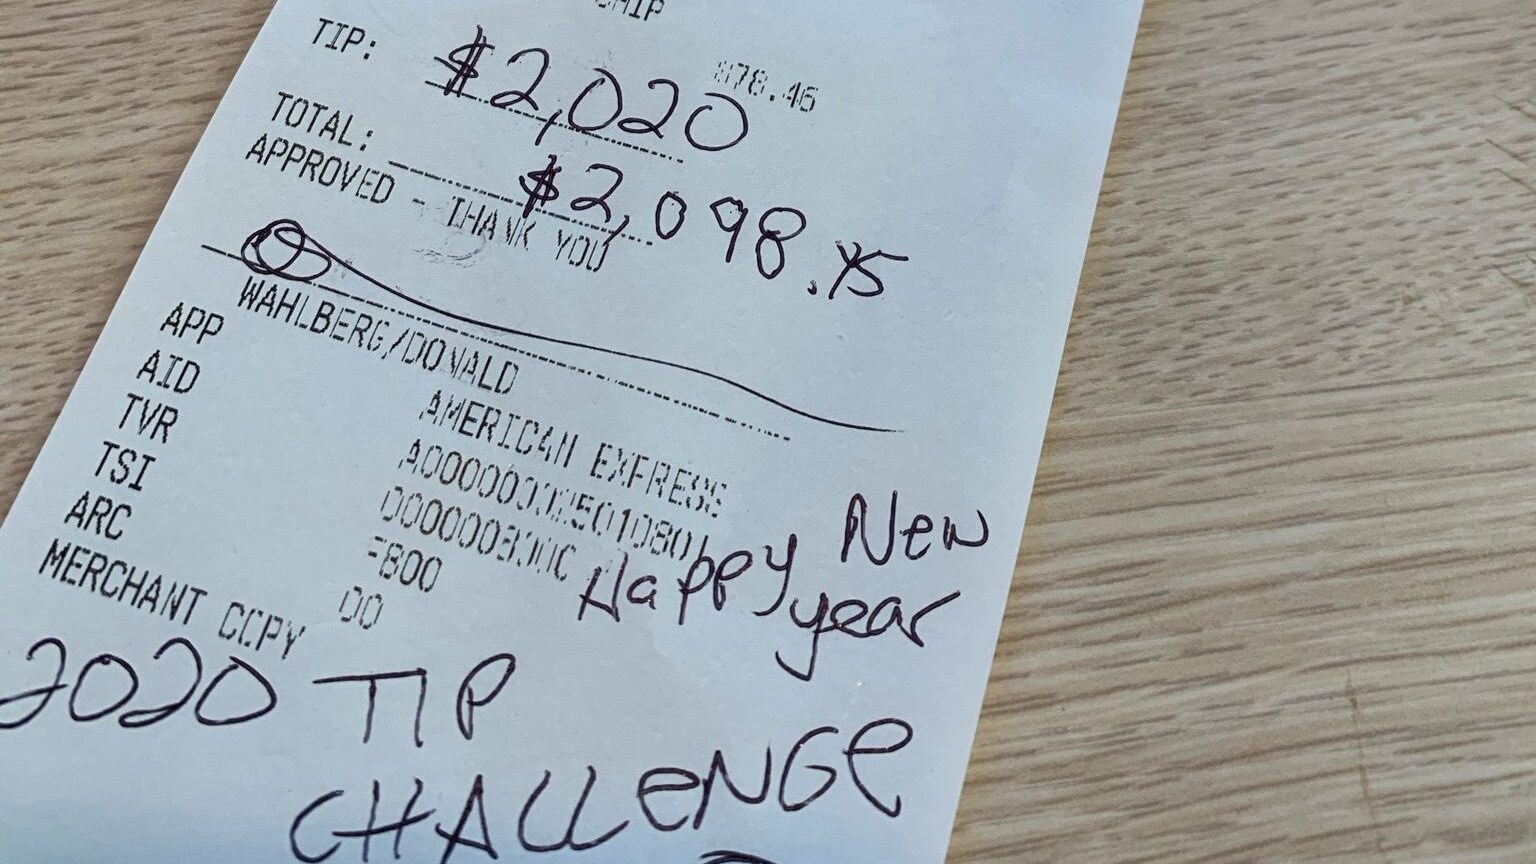 CHIP
$78.46
TIP: $2,020
TOTAL: $2,098.45
APPROVED - THANK YOU
WAHLBERG/DONALD
APP AMERICAN EXPRESS
AID
TVR
TSI F800
ARC 00
MERCHANT COPY
Happy New
year
2020 TIP
CHALLENGE